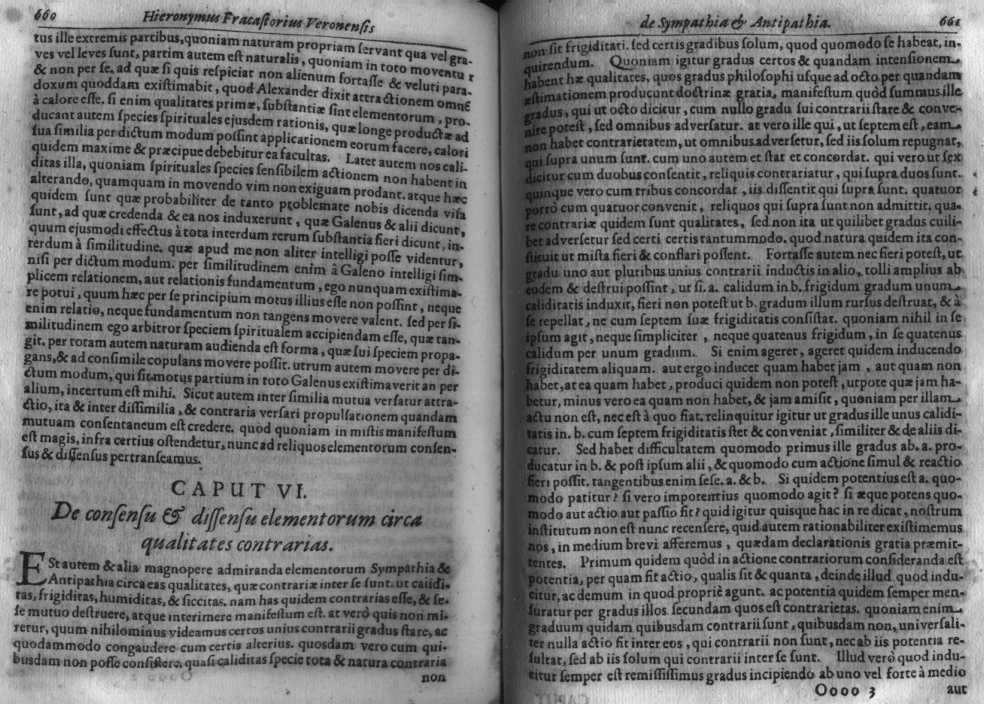 660 Hieronymus Fracastorius Veronensis
tus ille extremis partibus, quoniam naturam propriam servant qua vel gra-
ves vel leves sunt, partim autem est naturalis, quoniam in toto moventur
& non per se, ad quæ si quis respiciat non alienum fortasse & veluti para-
doxum quoddam existimabit, quod Alexander dixit attractionem omnē
à calore esse. si enim qualitates primæ, substantiæ sint elementorum, pro-
ducant autem species spirituales ejusdem rationis, quæ longe productæ ad
sua similia per dictum modum possint applicationem eorum facere, calori
quidem maxime & præcipue debebitur ea facultas. Later autem nos cali-
ditas illa, quoniam spirituales species sensibilem actionem non habent in
alterando, quamquam in movendo vim non exiguam prodant. atque hæc
quidem sunt quæ probabiliter de tanto problemate nobis dicenda visa
sunt, ad quæ credenda & ea nos induxerunt, quæ Galenus & alii dicunt,
quum ejusmodi effectus à tota interdum rerum substantia fieri dicunt, in-
terdum à similitudine. quæ apud me non aliter intelligi posse videntur,
nisi per dictum modum. per similitudinem enim à Galeno intelligi sim-
plicem relationem, aut relationis fundamentum, ego nunquam existima-
re potui, quum hæc per se principium motus illius esse non possint, neque
enim relatio, neque fundamentum non tangens movere valent. sed per si-
militudinem ego arbitror speciem spiritualem accipiendam esse, quæ tan-
git. per totam autem naturam audienda est forma, quæ sui speciem propa-
gans, & ad consimile copulans movere possit. utrum autem movere per di-
ctum modum, qui sit motus partium in toto Galenus existimaverit an per
alium, incertum est mihi. Sicut autem inter similia mutua versatur attra-
ctio, ita & inter dissimilia, & contraria versari propulsationem quandam
mutuam consentaneum est credere. quod quoniam in mistis manifestum
est magis, infra certius ostendetur, nunc ad reliquos elementorum consen-
sus & dissensus pertranseamus.
CAPUT VI.
De consensu & dissensu elementorum circa
qualitates contrarias.
Est autem & alia magnopere admiranda elementorum Sympathia &
Antipathia circa eas qualitates, quæ contrariæ inter se sunt. ut calidi-
tas, frigiditas, humiditas, & siccitas. nam has quidem contrarias esse, & se-
se mutuo destruere, atque interimere manifestum est. at verò quis non mi-
retur, quum nihilominus videamus certos unius contrarii gradus stare, ac
quodammodo congaudere cum certis alterius. quosdam vero cum qui-
busdam non posse consistere, quasi caliditas specie tota & natura contraria
non
de Sympathia & Antipathia. 661
non sit frigiditati. sed certis gradibus solum, quod quomodo se habeat, in-
quirendum. Quoniam igitur gradus certos & quandam intensionem
habent hæ qualitates, quos gradus philosophi usque ad octo per quandam
æstimationem producunt doctrinæ gratia, manifestum quòd summus ille
gradus, qui ut octo dicitur, cum nullo gradu sui contrarii stare & conve-
nire potest, sed omnibus adversatur. at vero ille qui, ut septem est, eam
non habet contrarietatem, ut omnibus adversetur, sed iis solum repugnat,
qui supra unum sunt. cum uno autem et stat et concordat. qui vero ut sex
dicitur cum duobus consentit, reliquis contrariatur, qui supra duos sunt.
quinque vero cum tribus concordat, iis dissentit qui supra sunt. quatuor
porrò cum quatuor convenit, reliquos qui supra sunt non admittit. qua-
re contrariæ quidem sunt qualitates, sed non ita ut quilibet gradus cuili-
bet adversetur sed certi certis tantummodo. quod natura quidem ita con-
stituit ut mista fieri & conflari possent. Fortasse autem nec fieri potest, ut
gradu uno aut pluribus unius contrarii inductis in alio, tolli amplius ab
eodem & destrui possint, ut si. a. calidum in b. frigidum gradum unum
caliditatis induxit, fieri non potest ut b. gradum illum rursus destruat, & à
se repellat, ne cum septem suæ frigiditatis consistat. quoniam nihil in se
ipsum agit, neque simpliciter, neque quatenus frigidum, in se quatenus
calidum per unum gradum. Si enim ageret, ageret quidem inducendo
frigiditatem aliquam. aut ergo inducet quam habet jam, aut quam non
habet, at ea quam habet, produci quidem non potest, utpote quæ jam ha-
betur, minus vero ea quam non habet, & jam amisit, quoniam per illam
actu non est, nec est à quo fiat. relinquitur igitur ut gradus ille unus calidi-
tatis in. b. cum septem frigiditatis stet & conveniat, similiter & de aliis di-
catur. Sed habet difficultatem quomodo primus ille gradus ab. a. pro-
ducatur in b. & post ipsum alii, & quomodo cum actione simul & reactio
fieri possit. tangentibus enim sese. a. & b. Si quidem potentius est a. quo-
modo patitur? si vero impotentius quomodo agit? si æque potens quo-
modo aut actio aut passio fit? quid igitur quisque hac in re dicat, nostrum
institutum non est nunc recensere, quid autem rationabiliter existimemus
nos, in medium brevi afferemus, quædam declarationis gratia præmit-
tentes. Primum quidem quòd in actione contrariorum consideranda est
potentia, per quam fit actio, qualis sit & quanta, deinde illud quod indu-
citur, ac demum in quod propriè agunt. ac potentia quidem semper men-
suratur per gradus illos secundam quos est contrarietas. quoniam enim
graduum quidam quibusdam contrarii sunt, quibusdam non, universali-
ter nulla actio fit inter eos, qui contrarii non sunt, nec ab iis potentia re-
sultat, sed ab iis solum qui contrarii inter se sunt. Illud verò quod indu-
citur semper est remississimus gradus incipiendo ab uno vel forte à medio
Oooo 3 aut